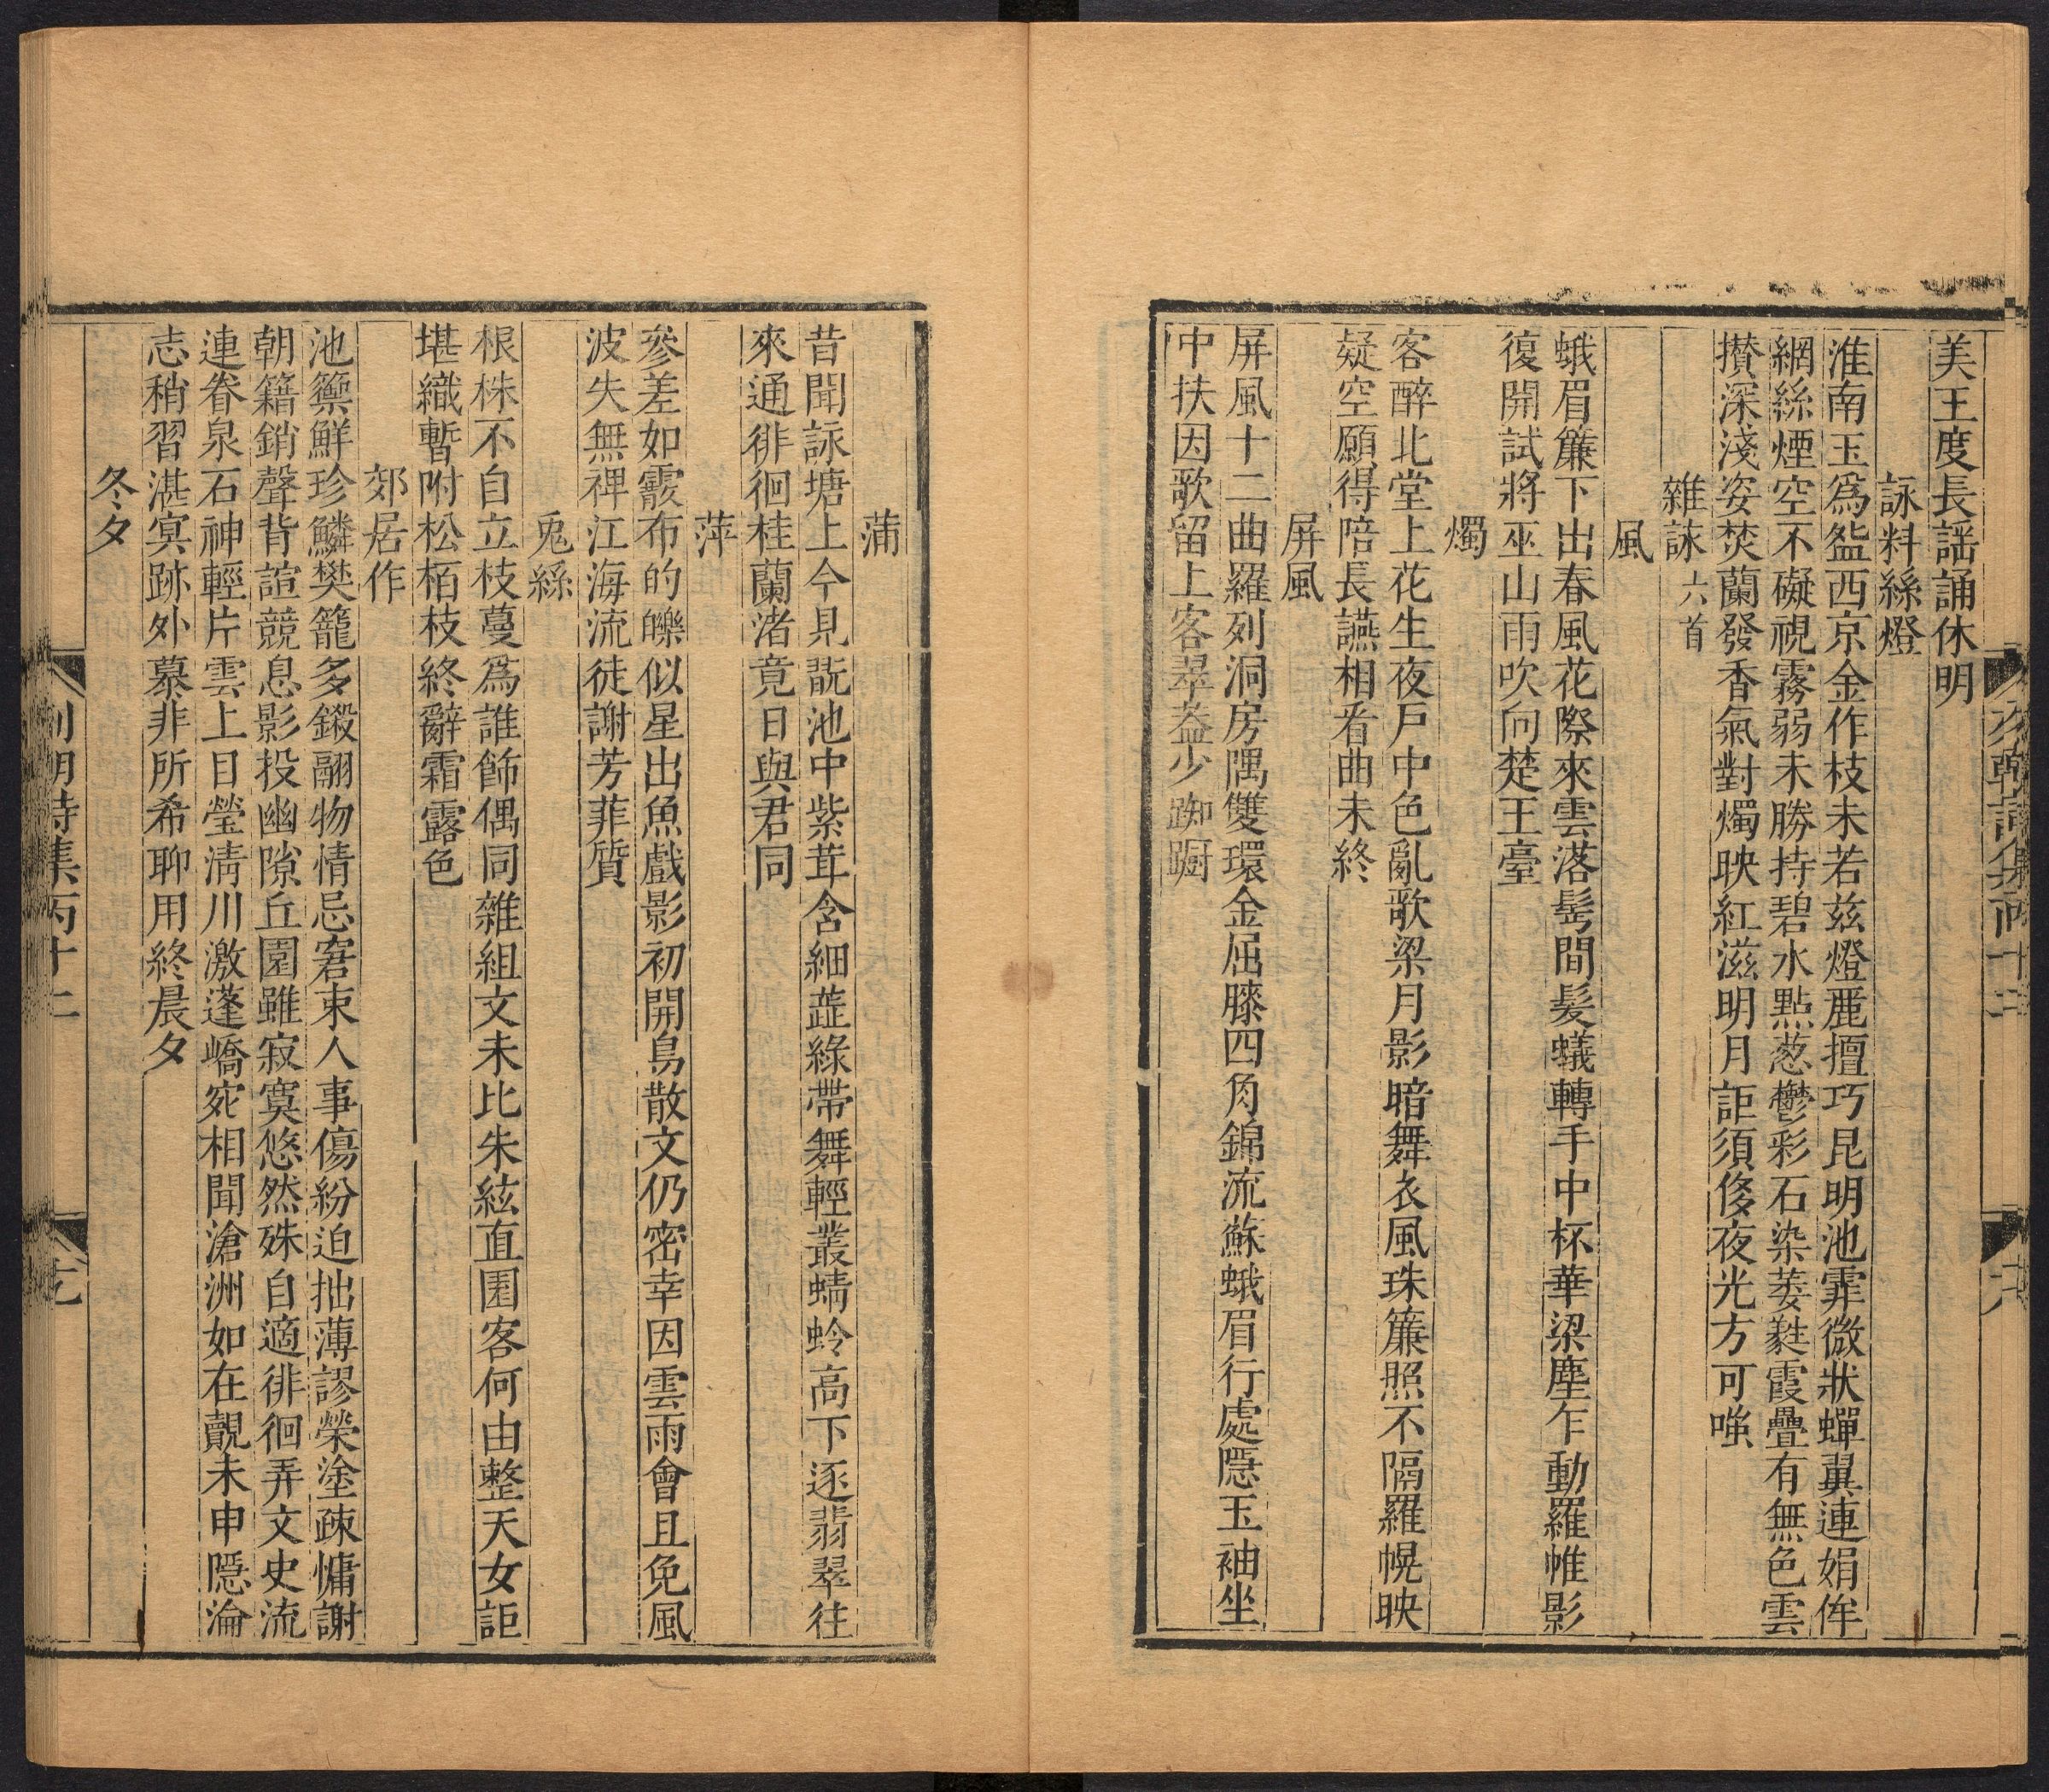 美王度長謡誦休明
詠料絲燈
淮南玉爲盌西京金作枝未若兹燈麗擅巧昆明池霏微狀蟬翼連娟侔
網絲煙空不礙視霧弱未勝持碧水點葱鬱彩石染萎蕤霞疊有無色雲
攢深淺姿焚蘭發香氣對燭映紅滋明月詎須侈夜光方可嗤
雜詠六首
風
蛾眉簾下出春風花際來雲落髩間髮蟻轉手中杯華梁塵乍動羅帷影
復開試將巫山雨吹向楚王臺
燭
客醉北堂上花生夜戸中色亂歌梁月影暗舞衣風珠簾照不隔羅幌映
疑空願得陪長讌相看曲未終
屏風
屏風十二曲羅列洞房隅雙環金屈膝四角錦流蘇蛾眉行處隱玉袖坐
中扶因歌留上客翠葢少踟蹰
蒲
昔聞詠塘上今見翫池中紫茸含細蕋綠帶舞輕叢蜻蛉高下逐翡翠往
來通徘徊桂蘭渚竟日與君同
萍
叅差如霰布的皪似星出魚戲影初開鳥散文仍密幸因雲雨會且免風
波失無裨江海流徒謝芳菲質
兎絲
根株不自立枝蔓爲誰飾偶同雜組文未比朱絃直園客何由整天女詎
堪織暫附松栢枝終辭霜露色
郊居作
池籞鮮珍鱗樊籠多鎩翮物情忌窘束人事傷紛迫拙薄謬榮塗疎慵謝
朝籍銷聲背諠競息影投幽隙丘園雖寂寞悠然殊自適徘徊弄文史流
連眷泉石神輕片雲上目瑩淸川激蓬嶠宛相聞滄洲如在覿未申隱淪
志稍習湛寞跡外慕非所希聊用終晨夕
冬夕
列朝詩集丙十二